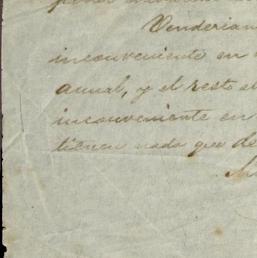 Venderian
inconveniente en
anual, y el resto al
inconveniente en
tienen nada que de